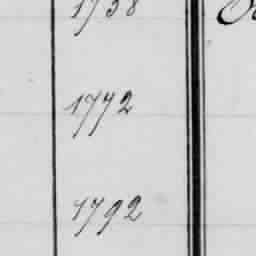 1758
1772
1792